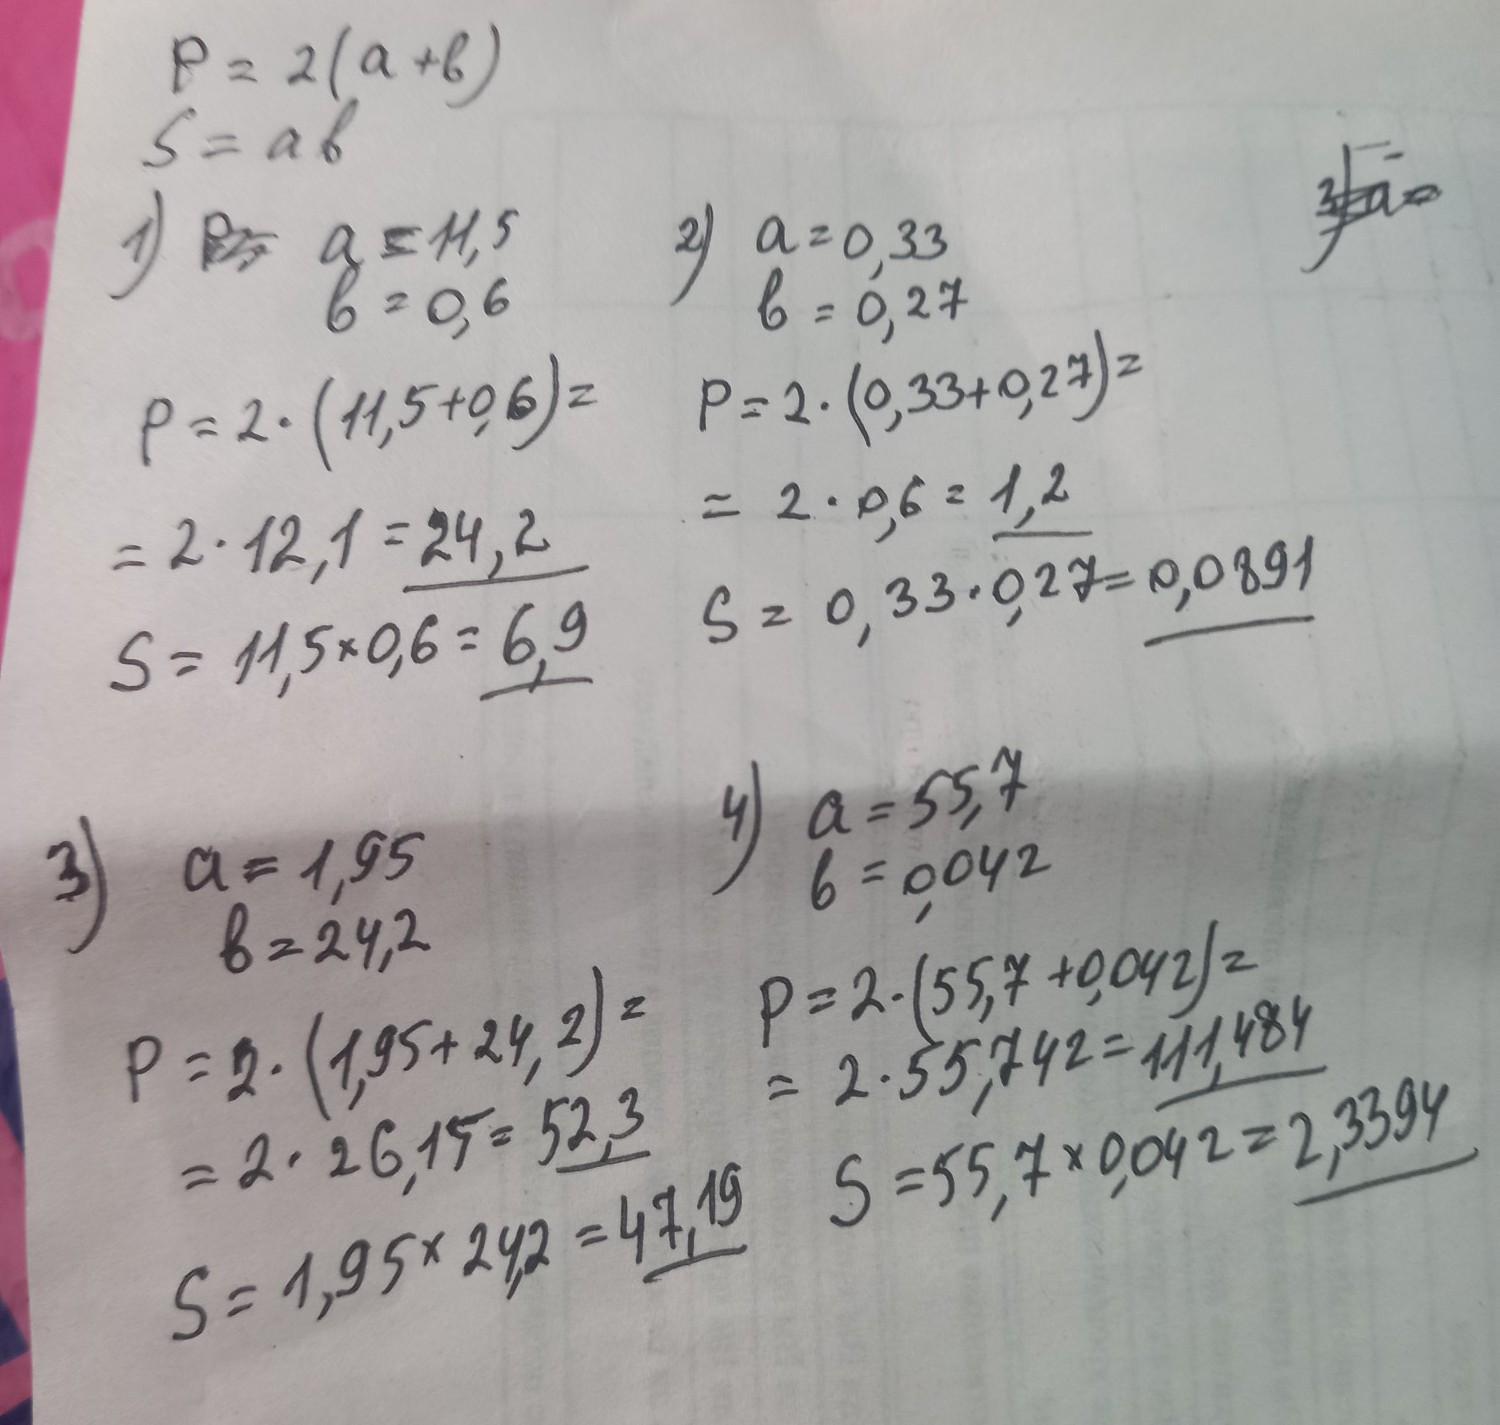 P = 2(a+b)
S = ab
1) a = 11,5
b = 0,6
P = 2·(11,5+0,6)=
= 2·12,1 = 24,2
S = 11,5×0,6 = 6,9
2) a = 0,33
b = 0,27
P = 2·(0,33+0,27)=
= 2·0,6 = 1,2
S = 0,33·0,27 = 0,0891
3) a = 1,95
b = 24,2
P = 2·(1,95+24,2)=
= 2·26,15 = 52,3
S = 1,95×24,2 = 47,19
4) a = 55,7
b = 0,042
P = 2·(55,7+0,042)=
= 2·55,742 = 111,484
S = 55,7×0,042 = 2,3394